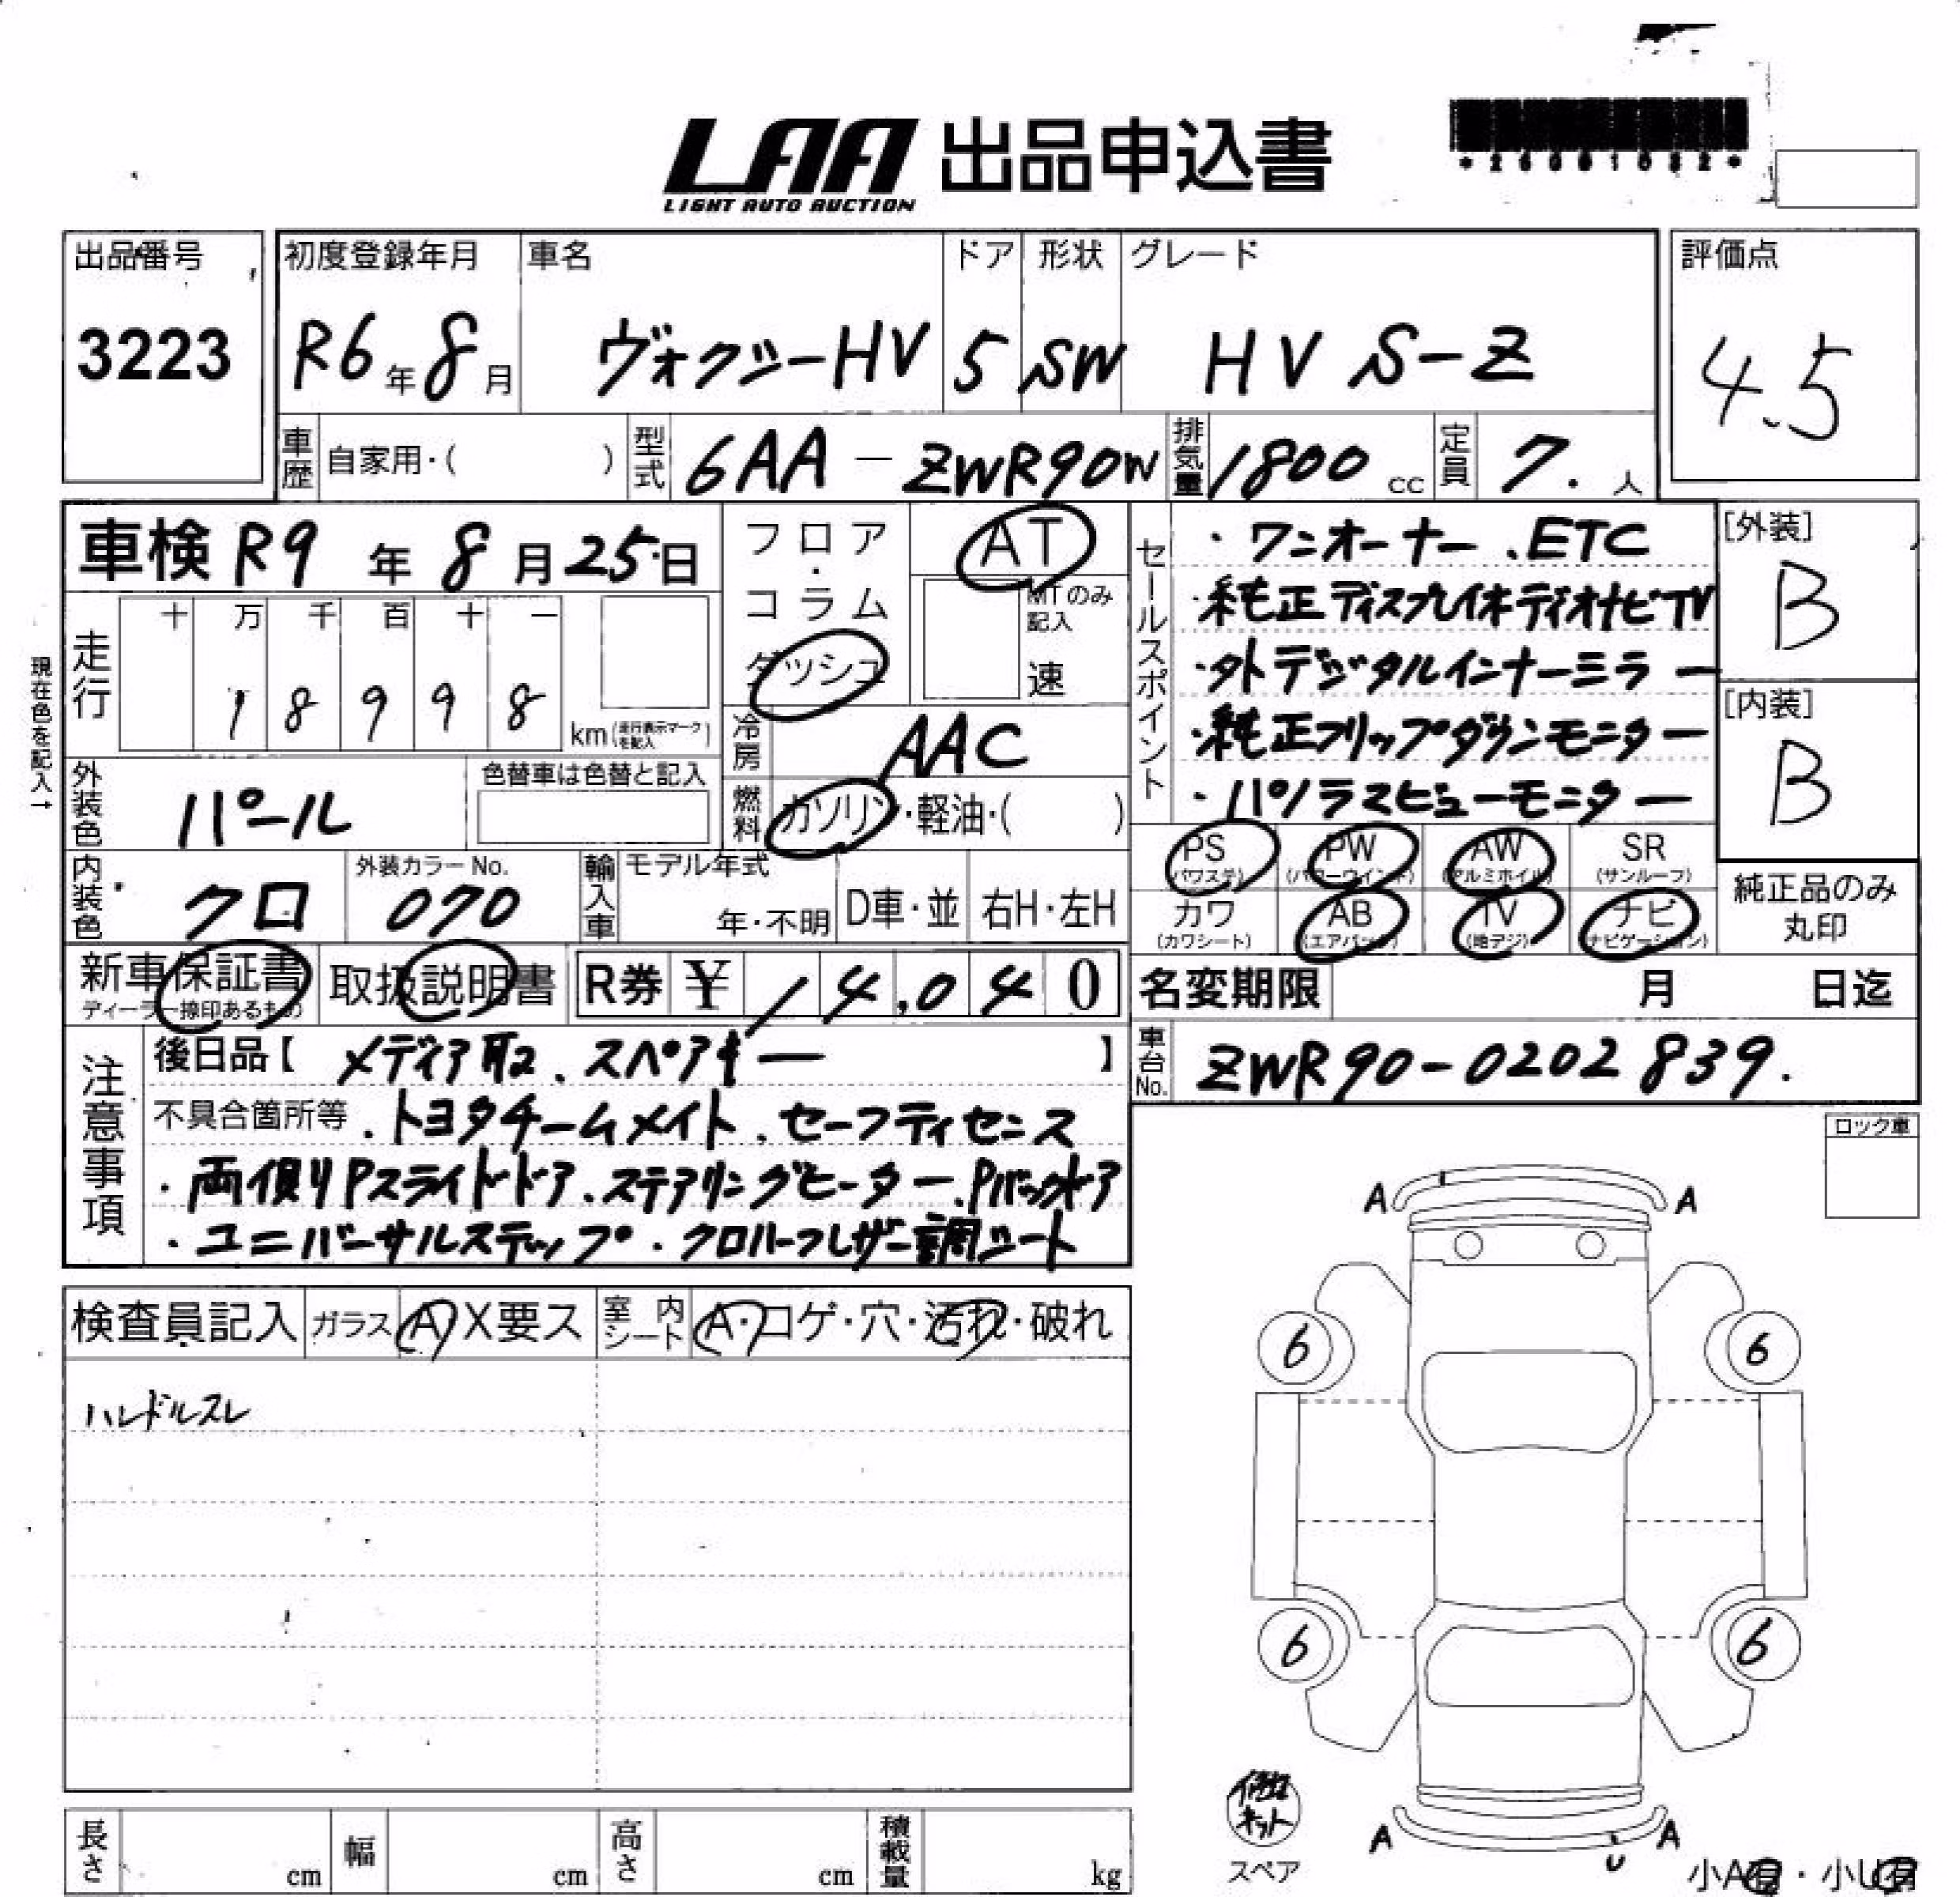 LAA 出品申込書
LIGHT AUTO AUCTION
出品番号
3223
初度登録年月
R6年8月
車名
ヴォクシーHV
ドア
5
形状
SW
グレード
HV S-Z
評価点
4.5
車歴 自家用・( )
型式 6AA-ZWR90W
排気量 1800cc
定員 7.人
車検 R9年8月25日
フロア・コラム ダッシュ
AT
MTのみ記入
速
走行
十 万 千 百 十 一
1 8 9 9 8
km(走行表示マークを記入)
現在色を記入→
冷房 AAC
燃料 ガソリン・軽油・( )
外装色 パール
色替車は色替と記入
内装色 クロ
外装カラーNo.
070
輸入車
モデル年式
年・不明
D車・並
右H・左H
セールスポイント
・ワンオーナー、ETC
・純正ディスプレイオーディオナビTV
・タト デジタルインナーミラー
・純正フリップダウンモニター
・パノラマビューモニター
[外装]
B
[内装]
B
PS (パワステ)
PW (パワーウインド)
AW (アルミホイル)
SR (サンルーフ)
カワ (カワシート)
AB (エアバック)
TV (地デジ)
ナビ (ナビゲーション)
純正品のみ丸印
新車保証書
ディーラー捺印あるもの
取扱説明書
R券 ¥ 14,040
名変期限 月 日迄
車台No. ZWR90-0202839.
注意事項
後日品【 メディア取、スペアキー 】
不具合箇所等 ・トヨタチームメイト、セーフティセンス
・両側Pスライドドア、ステアリングヒーター、Pバックドア
・ユニバーサルステップ・クロハーフレザー調シート
ロック車
検査員記入
ガラス A X要ス
室内シート A・コゲ・穴・汚れ・破れ
ハンドルスレ
A A
6 6
6 6
A A
U
キット
スペア
小A有・小U有
長さ cm
幅 cm
高さ cm
積載量 kg